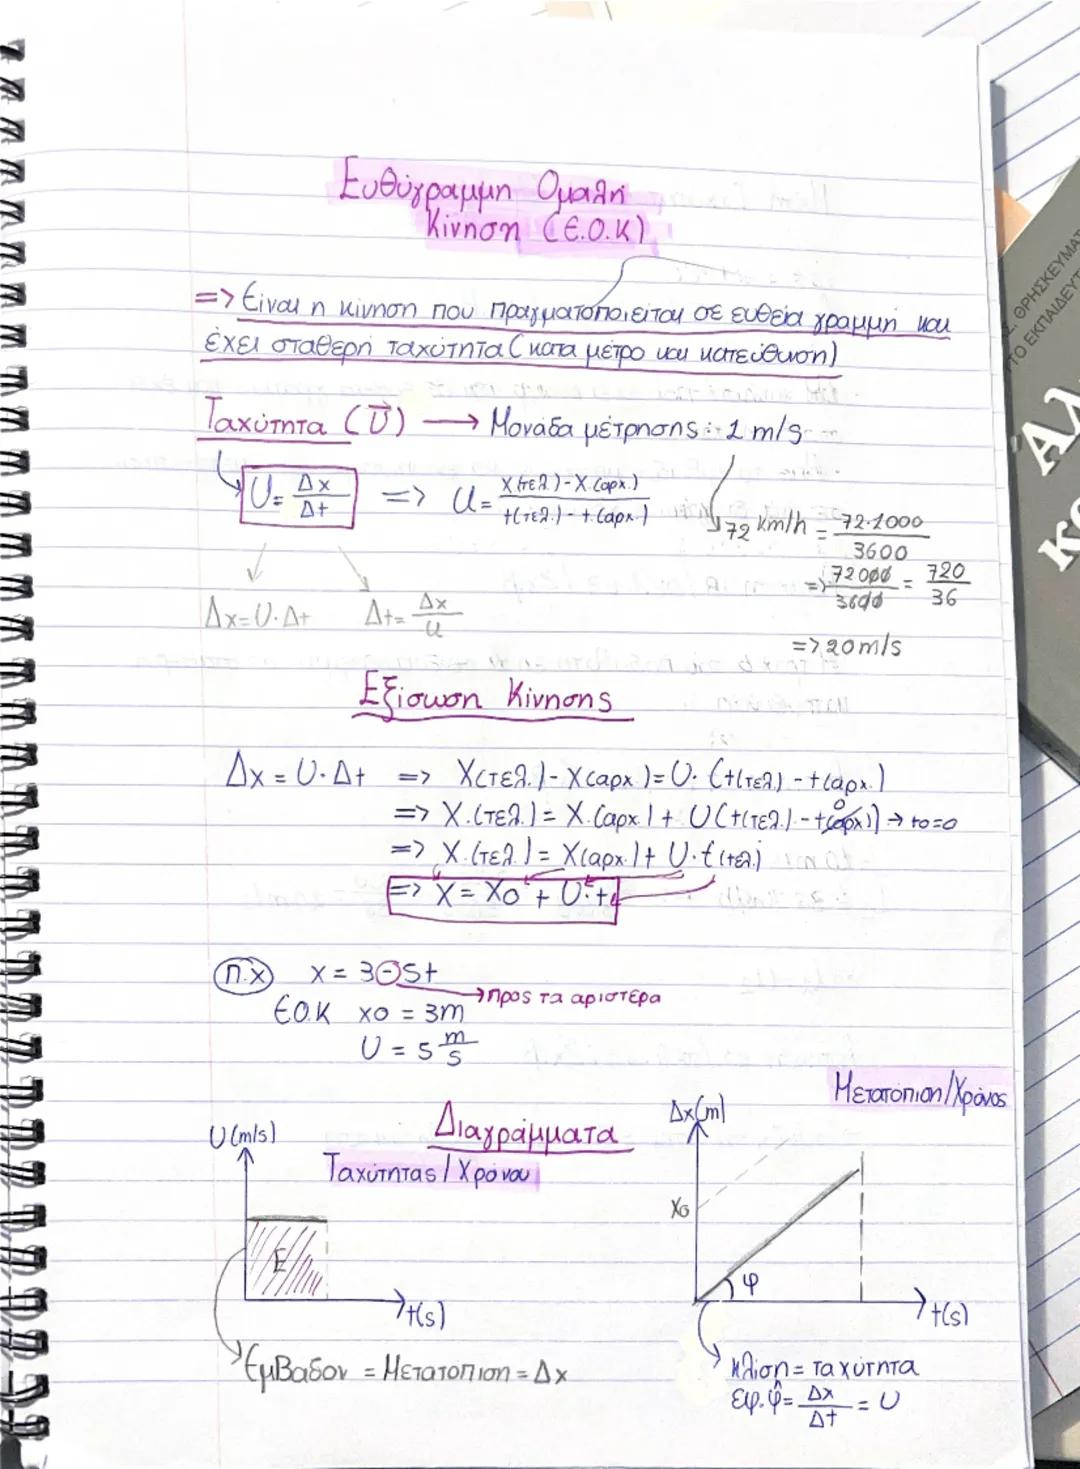 Ευθύγραμμη Ομαλή
Κίνηση (Ε.Ο.Κ)
=> Είναι η κίνηση που πραγματοποιείται σε ευθεία γραμμή και
έχει σταθερή ταχύτητα (κατα μέτρο και κατεύθυνση)
Ταχύτητα (U⃗) → Μονάδα μέτρησης: 1 m/s
U = Δx/Δt => U = x(τελ.) - x.(αρχ.)/t(τελ.) - t.(αρχ.)
72 km/h = 72·1000/3600
=> 72000/3600 = 720/36
Δx = U·Δt Δt = Δx/u
=> 20 m/s
Εξίσωση Κίνησης
Δx = U·Δt => X(τελ.) - X(αρχ.) = U·(t(τελ.) - t(αρχ.)
=> X.(τελ.) = X.(αρχ.) + U(t(τελ.) - t(αρχ.)) 0 → to=0
=> X.(τελ.) = X(αρχ.) + U·t(τελ.)
=> X = Xo + U·t
π.χ x = 3-5t
→ προς τα αριστερα
Ε.Ο.Κ xo = 3m
U = 5 m/s
Διαγράμματα
Ταχύτητας / Χρόνου
U(m/s)
E
t(s)
Εμβαδον = Μετατοπιση = Δx
Μετατόπιση/Χρόνος
Δx(m)
Xo
φ
t(s)
κλίση = ταχύτητα
εφ.φ̂ = Δx/Δt = U
ΘΡΗΣΚΕΥΜΑΤ
ΤΟ ΕΚΠΑΙΔΕΥΤ